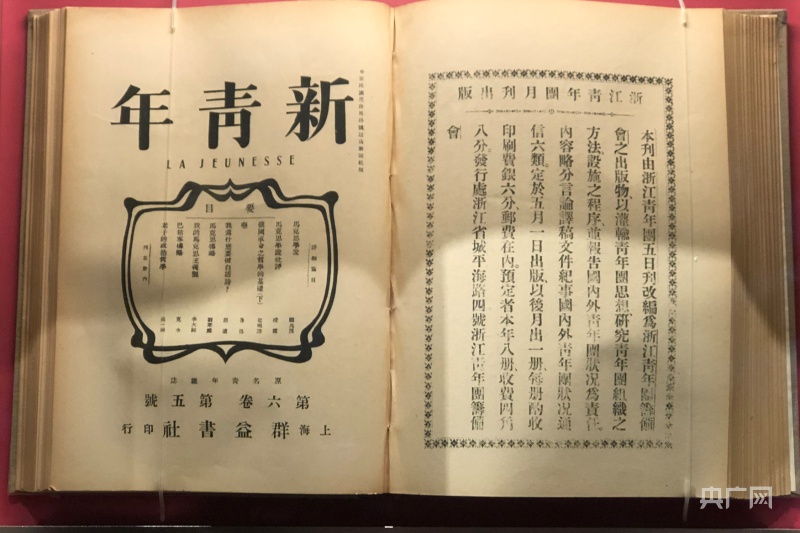 新青年
LA JEUNESSE
要目
馬克思學說
馬克思學說批評
俄國革命之哲學的基礎(下)
藥
我爲什麼要做白話詩?
馬克思傳略
我的馬克思主義觀
巴枯寧傳略
老子的政治哲學
原名青年雜誌
第六卷第五號
上海群益書社印行
浙江青年團月刊出版
本刊由浙江青年團五日刊改編爲浙江青年團籌備
會之出版物以灌輸青年團思想研究青年團組織之
方法設施之程序並報告國內外青年團狀况爲責任
內容略分言論譯稿文件紀事國內外青年團狀况通
信六類定於五月一日出版以後月出一册每册酌收
印刷費銀六分郵費在內預定者本年八册收費四角
八分發行處浙江省城平海路四號浙江青年團籌備
會
央广网